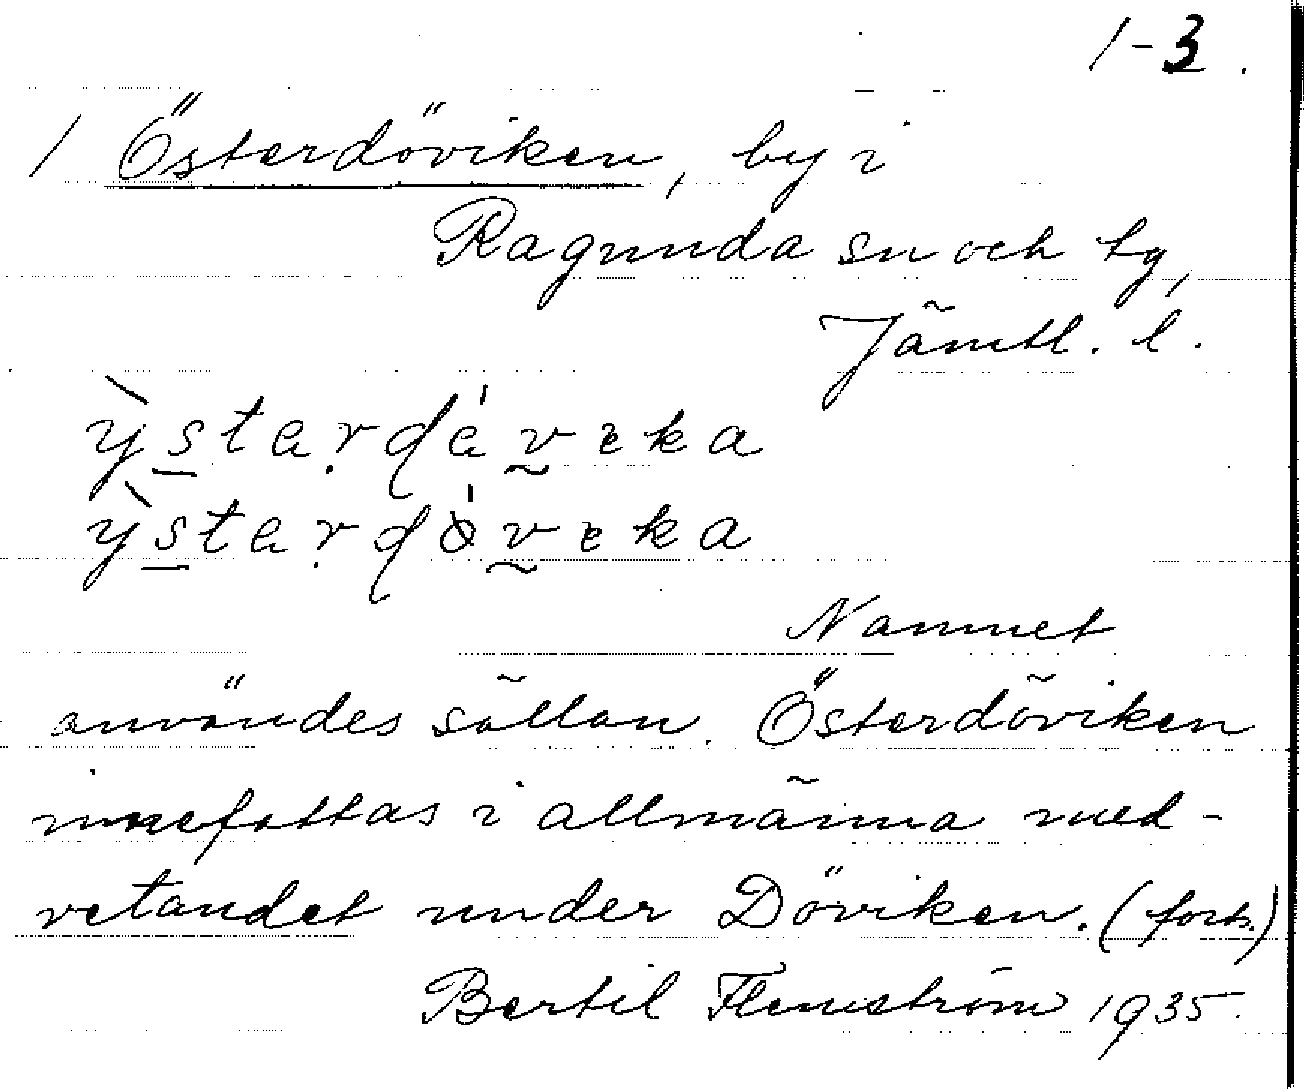 1-3.
1 Österdöviken, by i
Ragunda sn och tg,
Jämtl. l.
ỳstar̥dávɛka
ỳstar̥dǿvɛka
Namnet
användes sällan. Österdöviken
innefattas i allmänna med-
vetandet under Döviken. (forts.)
Bertil Flemström 1935.